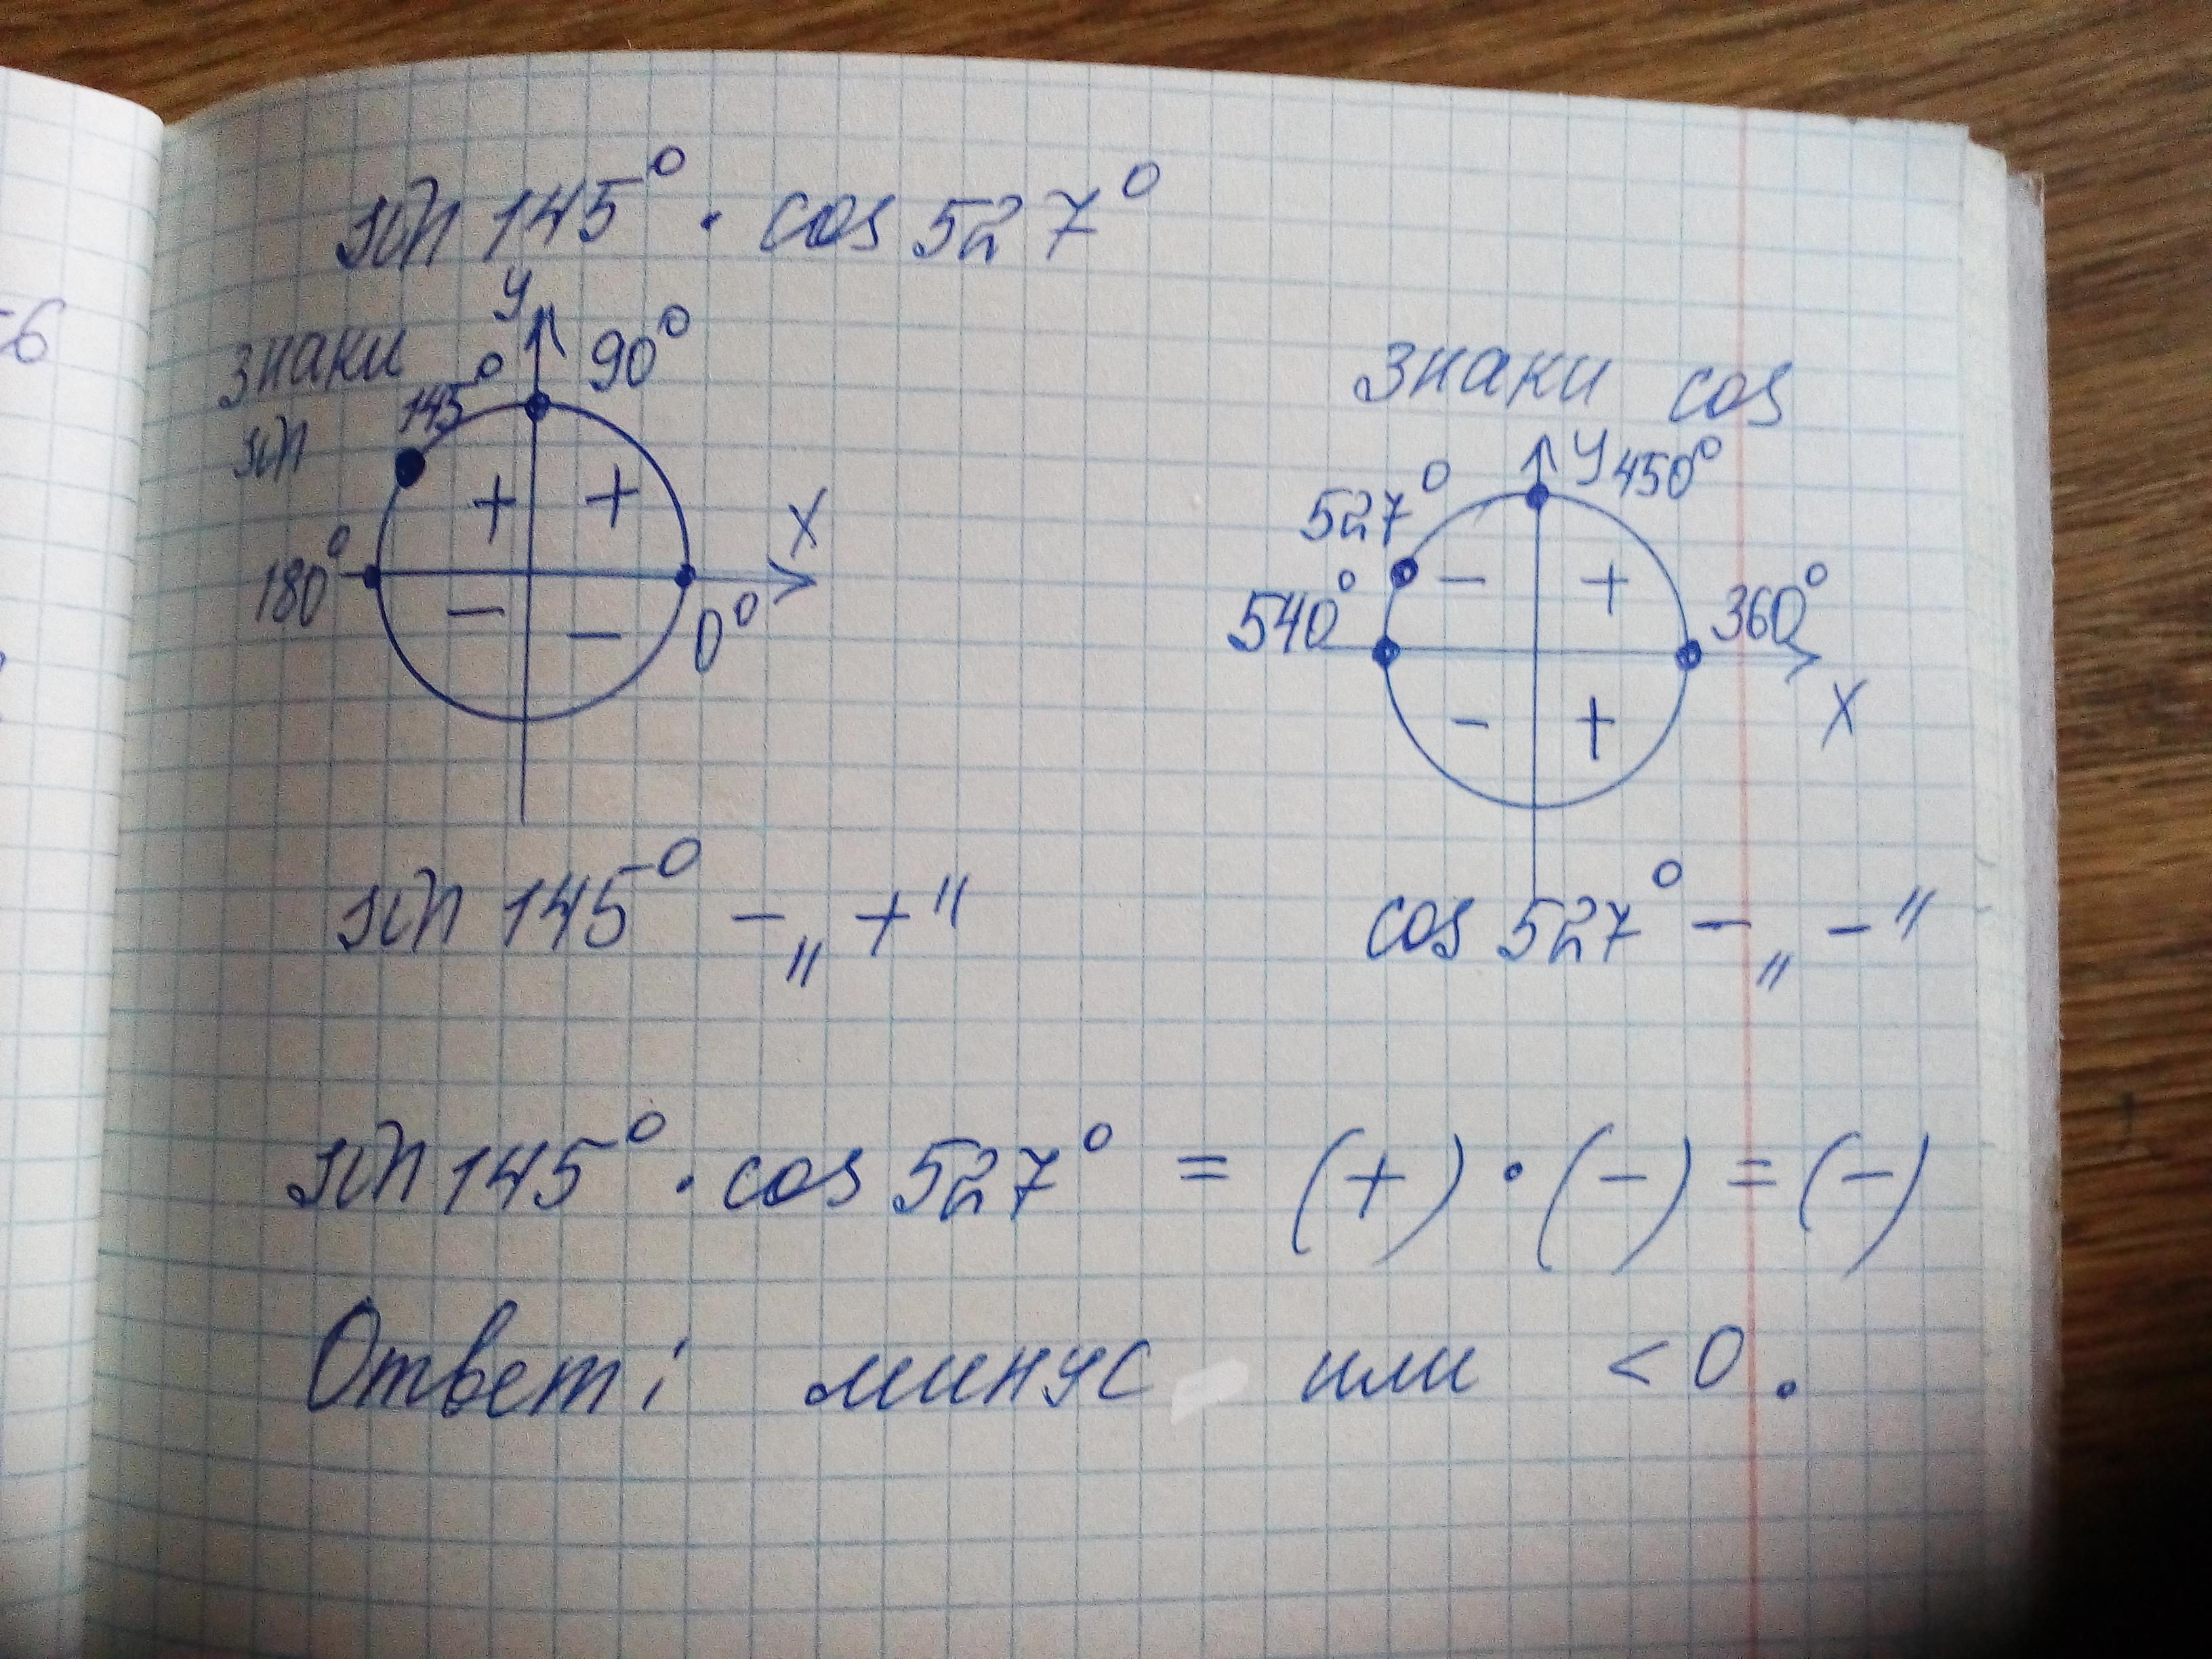 sin 145° · cos 527°
знаки sin
y
90°
145°
+ +
180°
x
- -
0°
знаки cos
y 450°
527°
- +
540°
360°
x
- +
sin 145° - „+"
cos 527° - „-"
sin 145° · cos 527° = (+) · (-) = (-)
Ответ: минус или < 0.
-6